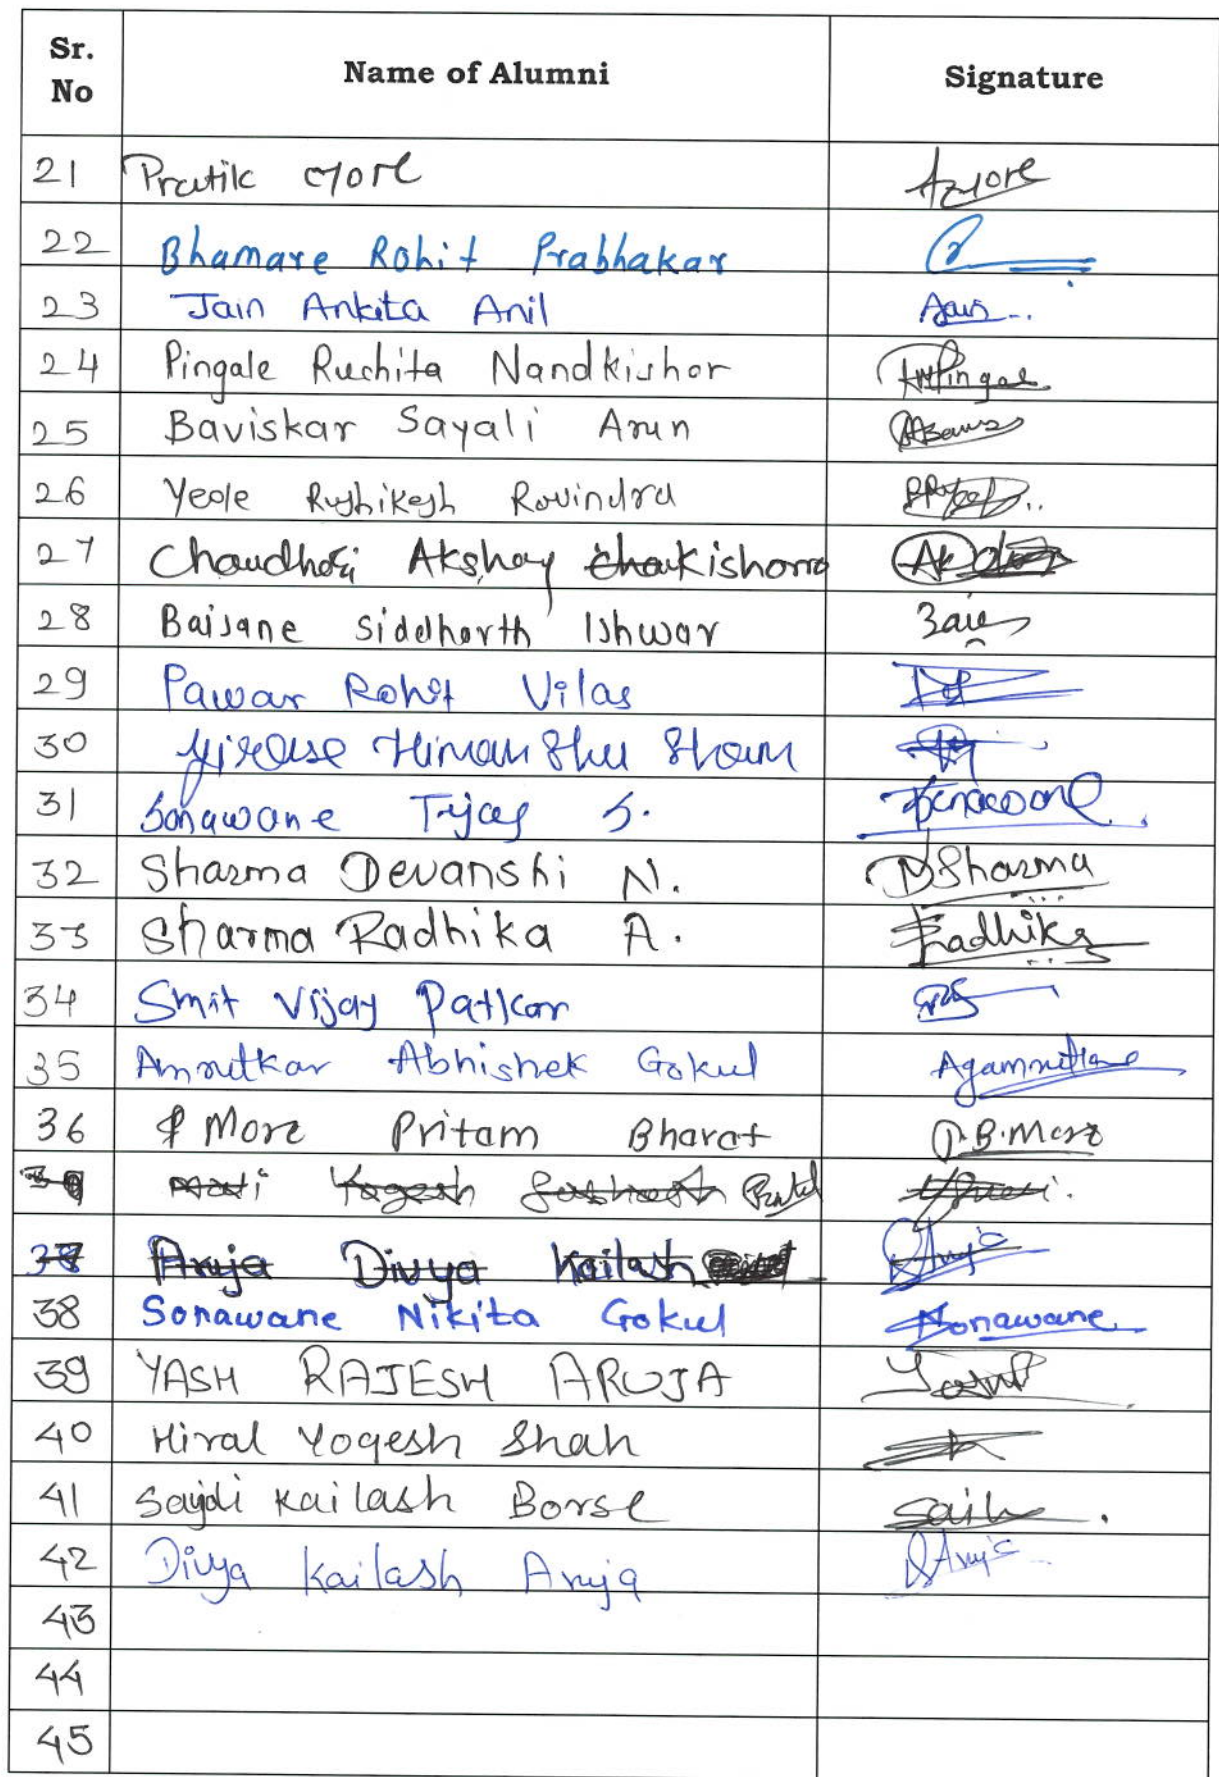 Sr. No Name of Alumni Signature
21 Pratik More
22 Bhamare Rohit Prabhakar
23 Jain Ankita Anil
24 Pingale Ruchita Nandkishor
25 Baviskar Sayali Arun
26 Yeole Rushikesh Ravindra
27 Chaudhari Akshay Kishorra
28 Baisane Siddharth Ishwar
29 Pawar Rohit Vilas
30 Girase Himanshu Sham
31 Sonawane Tejas S. Sonawane
32 Sharma Devanshi N. DSharma
33 Sharma Radhika A. Radhika
34 Smit Vijay Patkar
35 Amrutkar Abhishek Gokul
36 More Pritam Bharat P.B.More
Yogesh
Aruja Divya Kailash
38 Sonawane Nikita Gokul Sonawane
39 YASH RAJESH ARUJA
40 Hiral Yogesh Shah
41 Kailash Borse
42 Divya Kailash Aruja
43
44
45